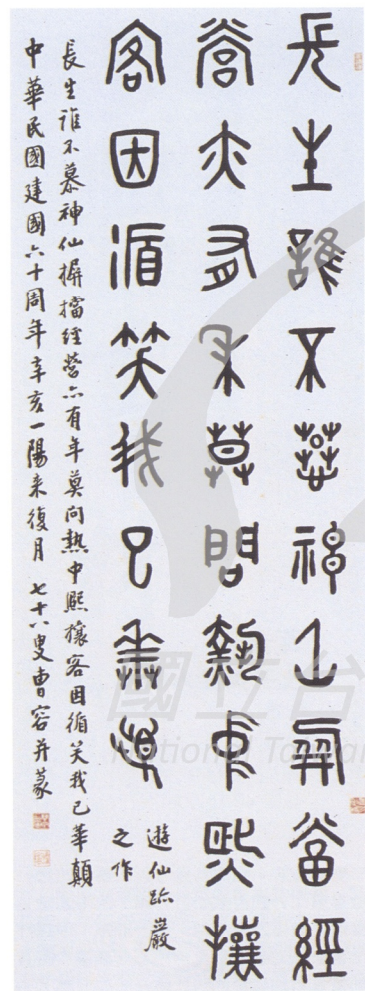 長生誰不慕神仙屏當經
營亦有年莫問熱中熙攘
客因循笑我已華顛
遊仙跡巖
之作
長生誰不慕神仙摒擋經營亦有年莫問熱中熙攘客因循笑我已華顛
中華民國建國六十周年辛亥一陽来復月 七十八叟曹容并篆
國立台
National Taiwan